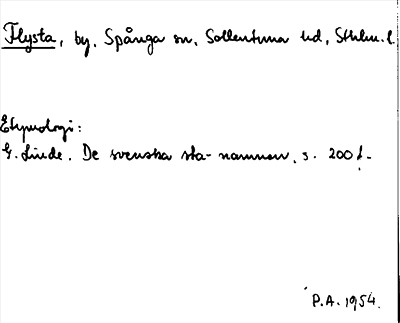 Flysta, by, Spånga sn, Sollentuna hd, Sthlm. l.
Etymologi:
G. Linde. De svenska sta-namnen, s. 200 f.
P.A. 1954.